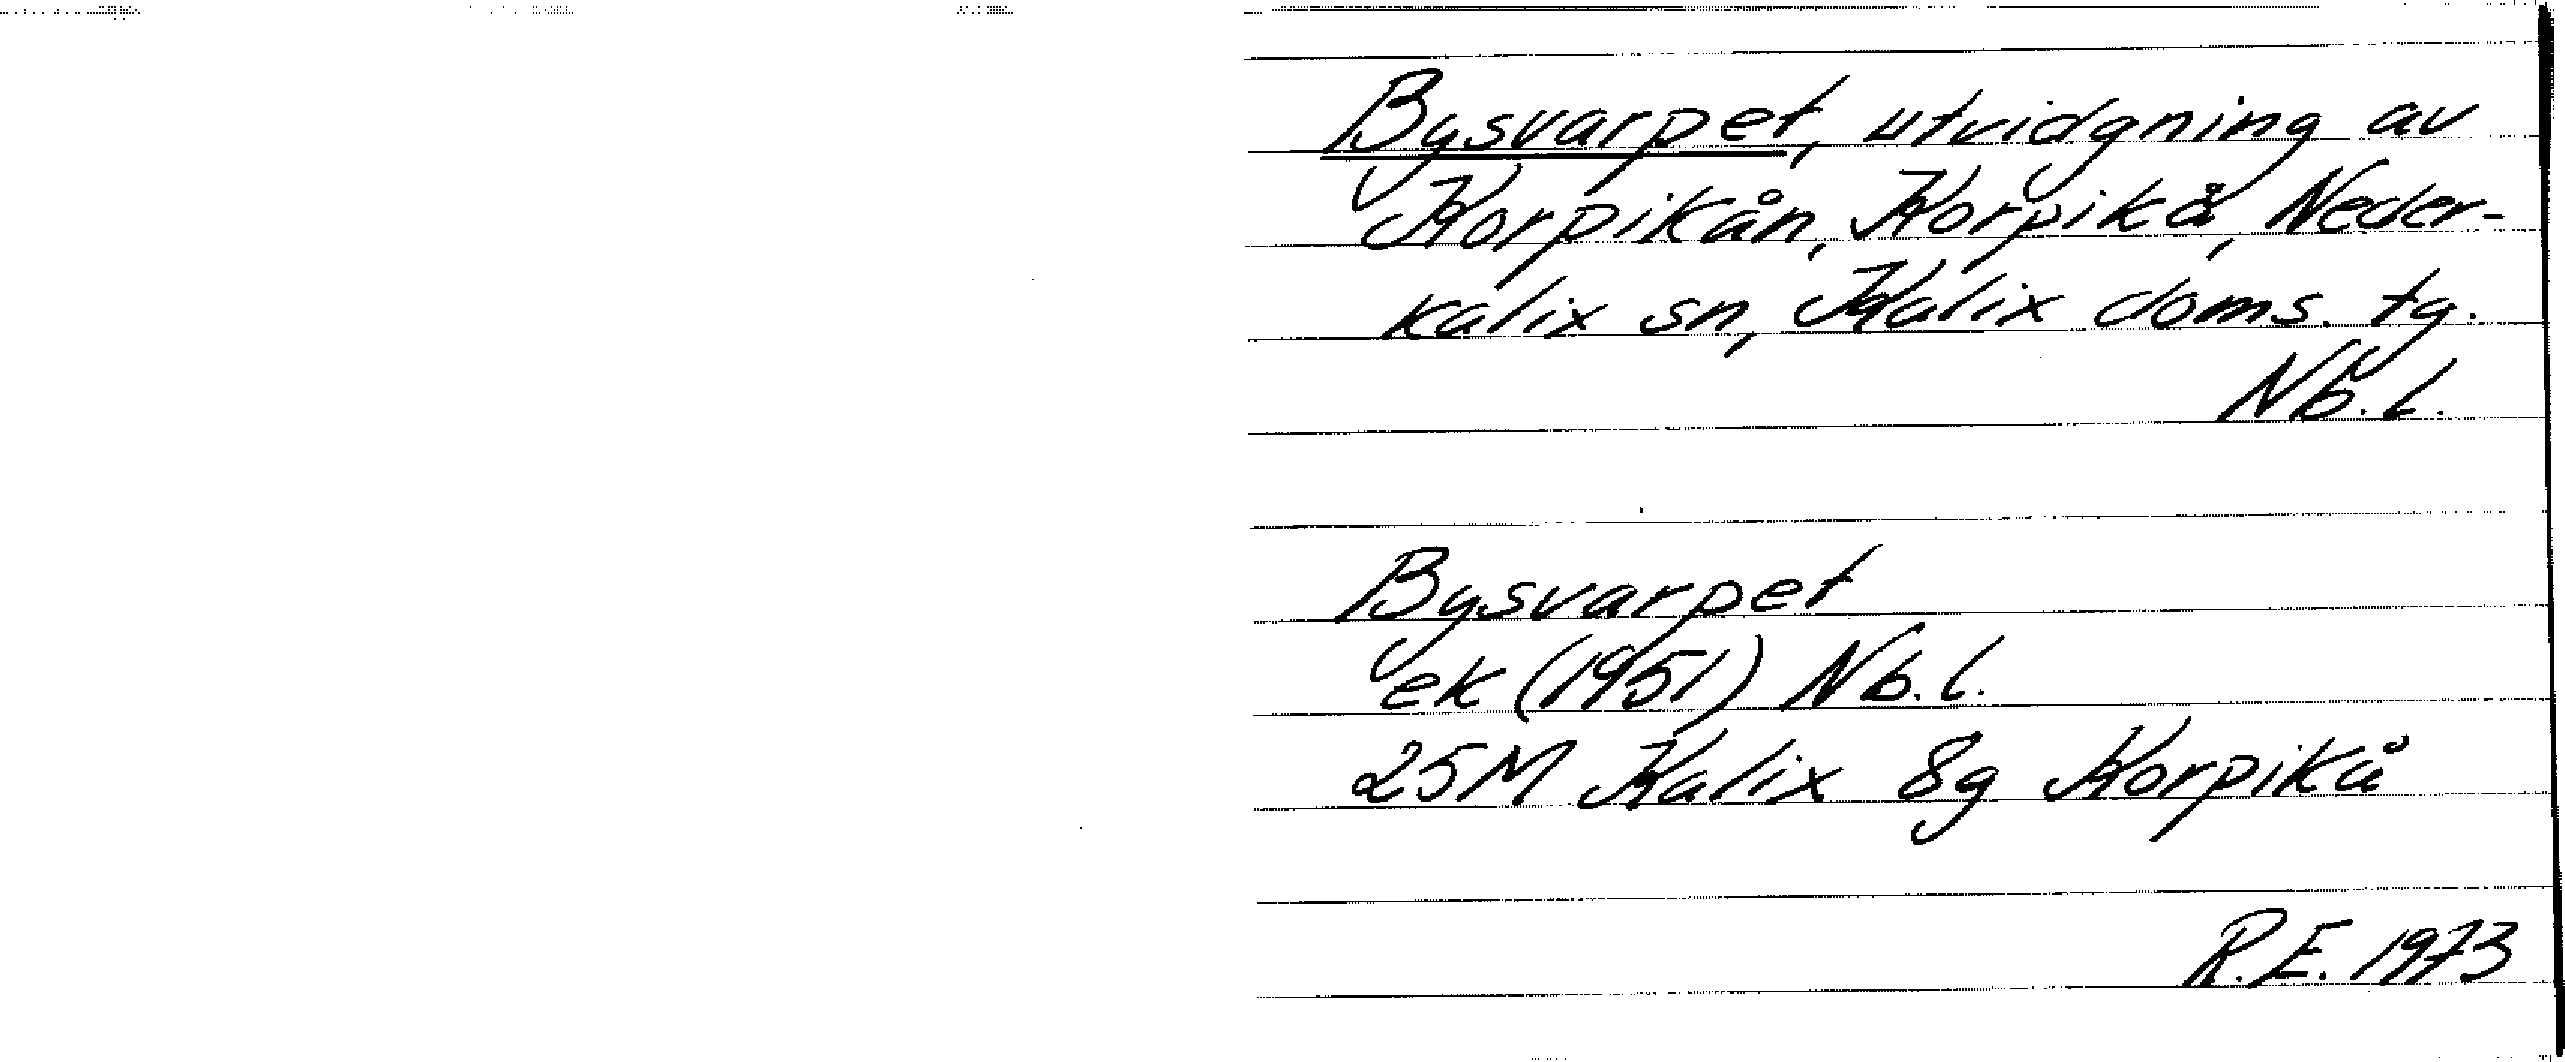 Bysvarpet, utvidgning av
Korpikån, Korpikå, Neder-
kalix sn, Kalix doms. tg.
Nb. l.
Bysvarpet
ek (1951) Nb. l.
25M Kalix 8g Korpikå
R.E. 1973